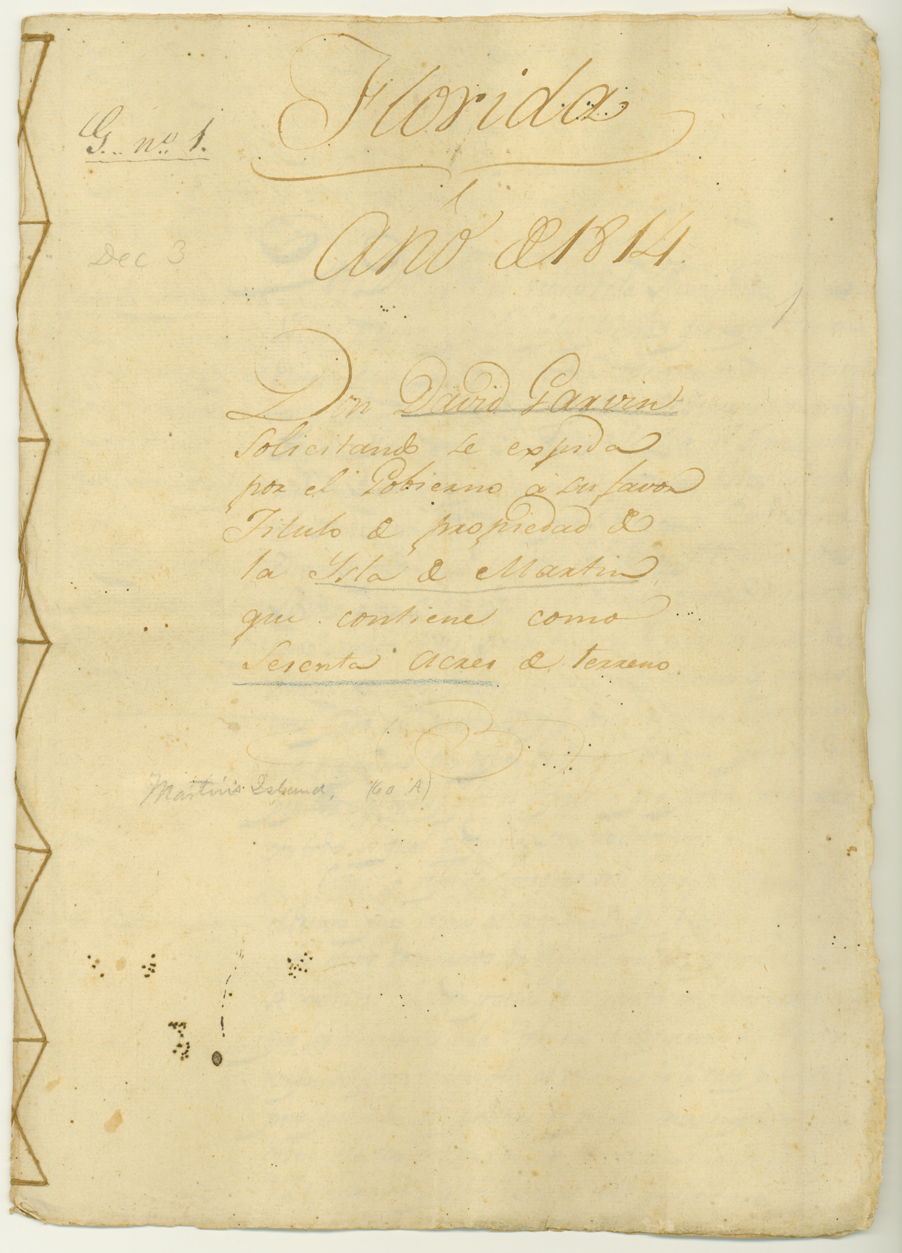 Florida
G. no. 1.
Año de 1814.
Dec 3
1
Don David Garvin
solicitando se expida
por el Gobierno à su favor
Titulo de propiedad de
la Ysla de Martin,
que contiene como
Sesenta acres de terreno.
Martin's Island, (60 A)